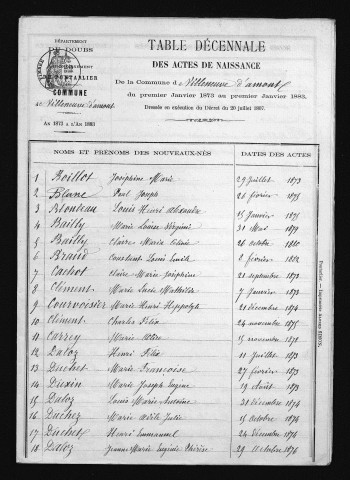 DÉPARTEMENT
DU DOUBS
ARRONDISSEMENT
DE PONTARLIER
COMMUNE
de Villeneuve d'amont
An 1873 à l'An 1883
TABLE DÉCENNALE
DES ACTES DE NAISSANCE
De la Commune d Villeneuve d'amont
du premier Janvier 1873 au premier Janvier 1883.
Dressée en exécution du Décret du 20 juillet 1807.
NOMS ET PRÉNOMS DES NOUVEAUX-NÉS DATES DES ACTES
1 Boillot Joséphine Marie 29 Juillet 1873
2 Blanc Paul Joseph 26 février 1875
3 Blondeau Louis Henri alexandre 25 Janvier 1875
4 Bailly Marie Louise Virginie 31 Mai 1879
5 Bailly Claire Maria Célinie 26 octobre 1880
6 Braud Constant Louis Emile 2 février 1882
7 Cachot Claire Marie Joséphine 21 septembre 1873
8 Clément Marie Lucie Mathilde 7 Janvier 1873
9 Courvoisier Marie Henri Hippolyte 21 décembre 1874
10 Clément Charles Félix 24 novembre 1875
11 Carrey Marie 15 novembre 1878
12 Daloz Henri Félix 11 Juillet 1873
13 Duchet Marie Françoise 27 février 1873
14 Marie Joseph Eugène 19 Août 1873
15 Daloz Louis Marie Antoine 31 décembre 1874
16 Duchez Marie Adèle Julie 15 octobre 1874
17 Duchet Henri Emmanuel 24 Décembre 1874
18 Daloz Jeanne Marie Eugénie Thérèse 29 octobre 1876